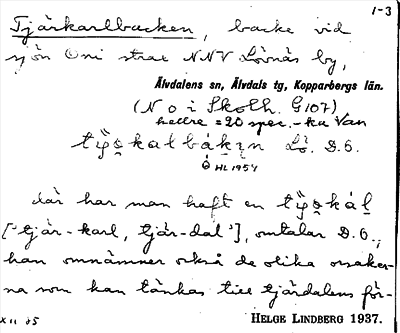 1-3
Tjärkarlbacken, backe vid
sjön Oni strax NNV Lövnäs by,
Älvdalens sn, Älvdals tg, Kopparbergs län.
(N o i Skolh. G107)
bättre = 20 spec. - ka Van
Lö. D.Ö.
HL 1954
där har man haft en
['tjär-karl, tjär-dal'], omtalar D.Ö.,
han omnämner också de olika orsaker-
na som kan tänkas till tjärdalens för-
XII 35 HELGE LINDBERG 1937.